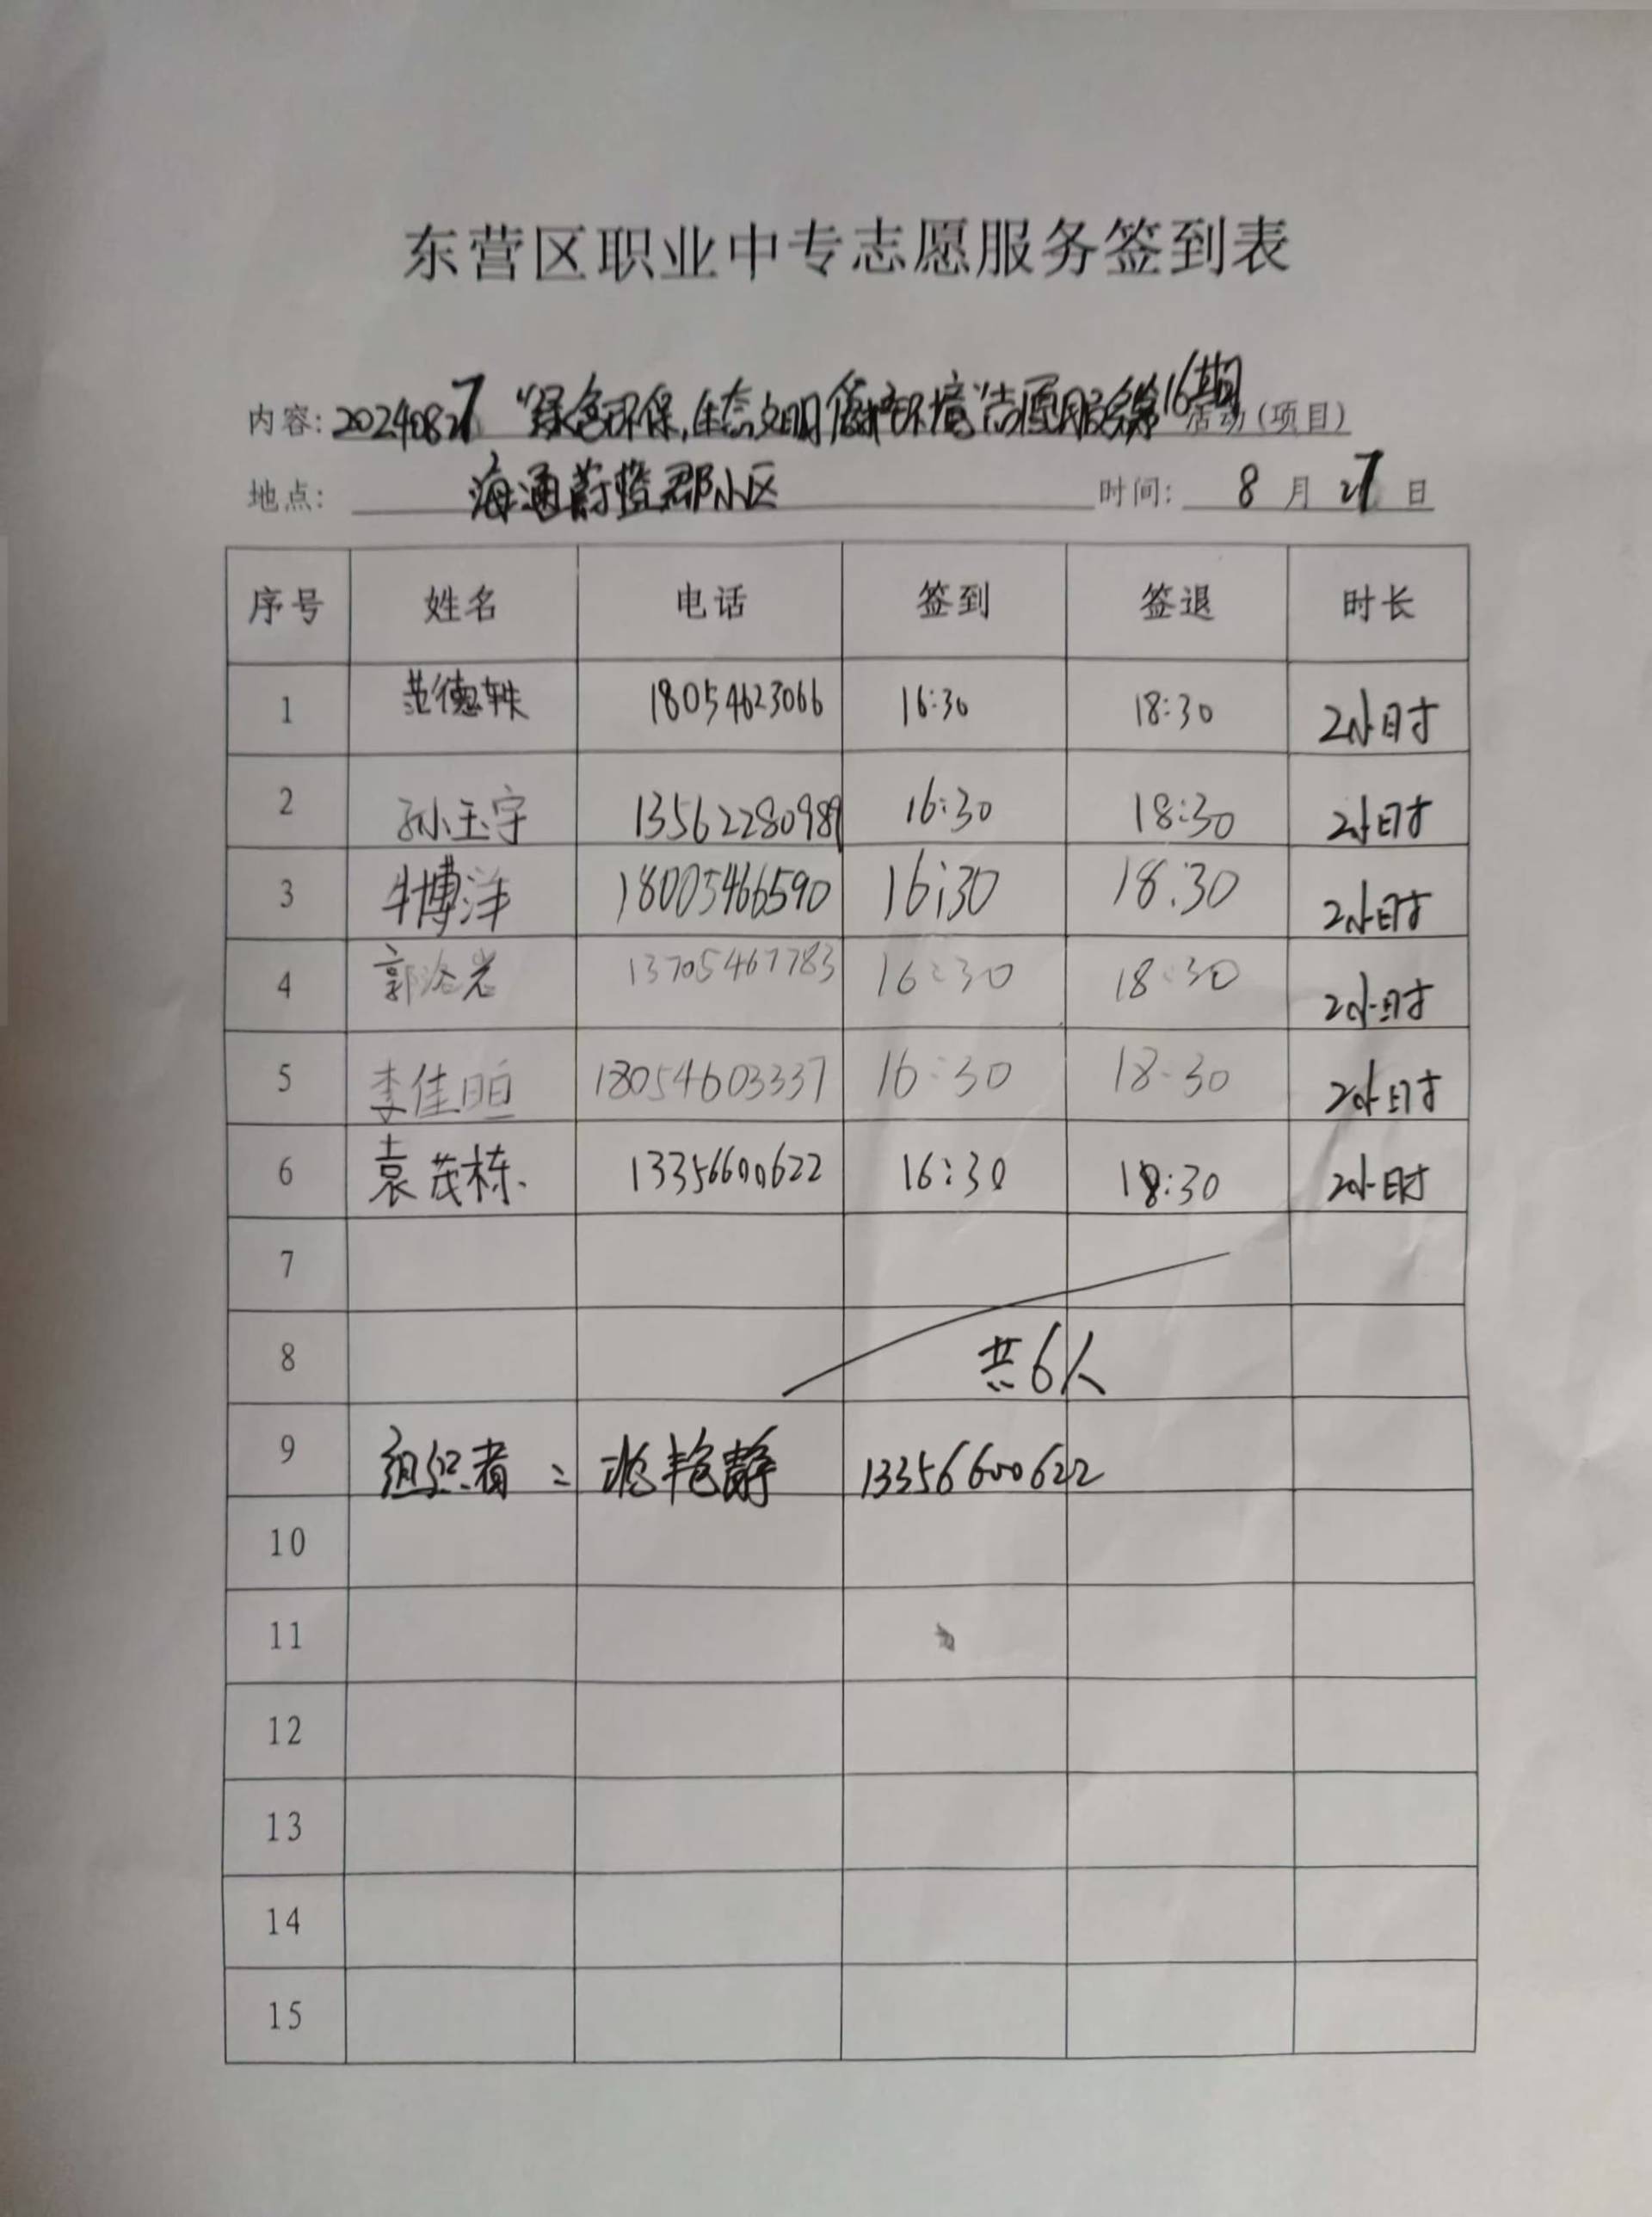 东营区职业中专志愿服务签到表
内容: 20240827 "绿色环保,生态文明 保护环境"志愿服务第16期 活动(项目)
地点: 海通蔚蓝郡小区 时间: 8 月 27 日
序号 姓名 电话 签到 签退 时长
1 范德轶 18054623066 16:30 18:30 2小时
2 孙玉宇 13562280989 16:30 18:30 2小时
3 牛博洋 18005466590 16:30 18:30 2小时
4 郭 13705467783 16:30 18:30 2小时
5 李佳晅 18054603337 16:30 18:30 2小时
6 袁茂栋 13356600622 16:30 18:30 2小时
7
8 共6人
9 组织者: 艳静 13356600622
10
11
12
13
14
15